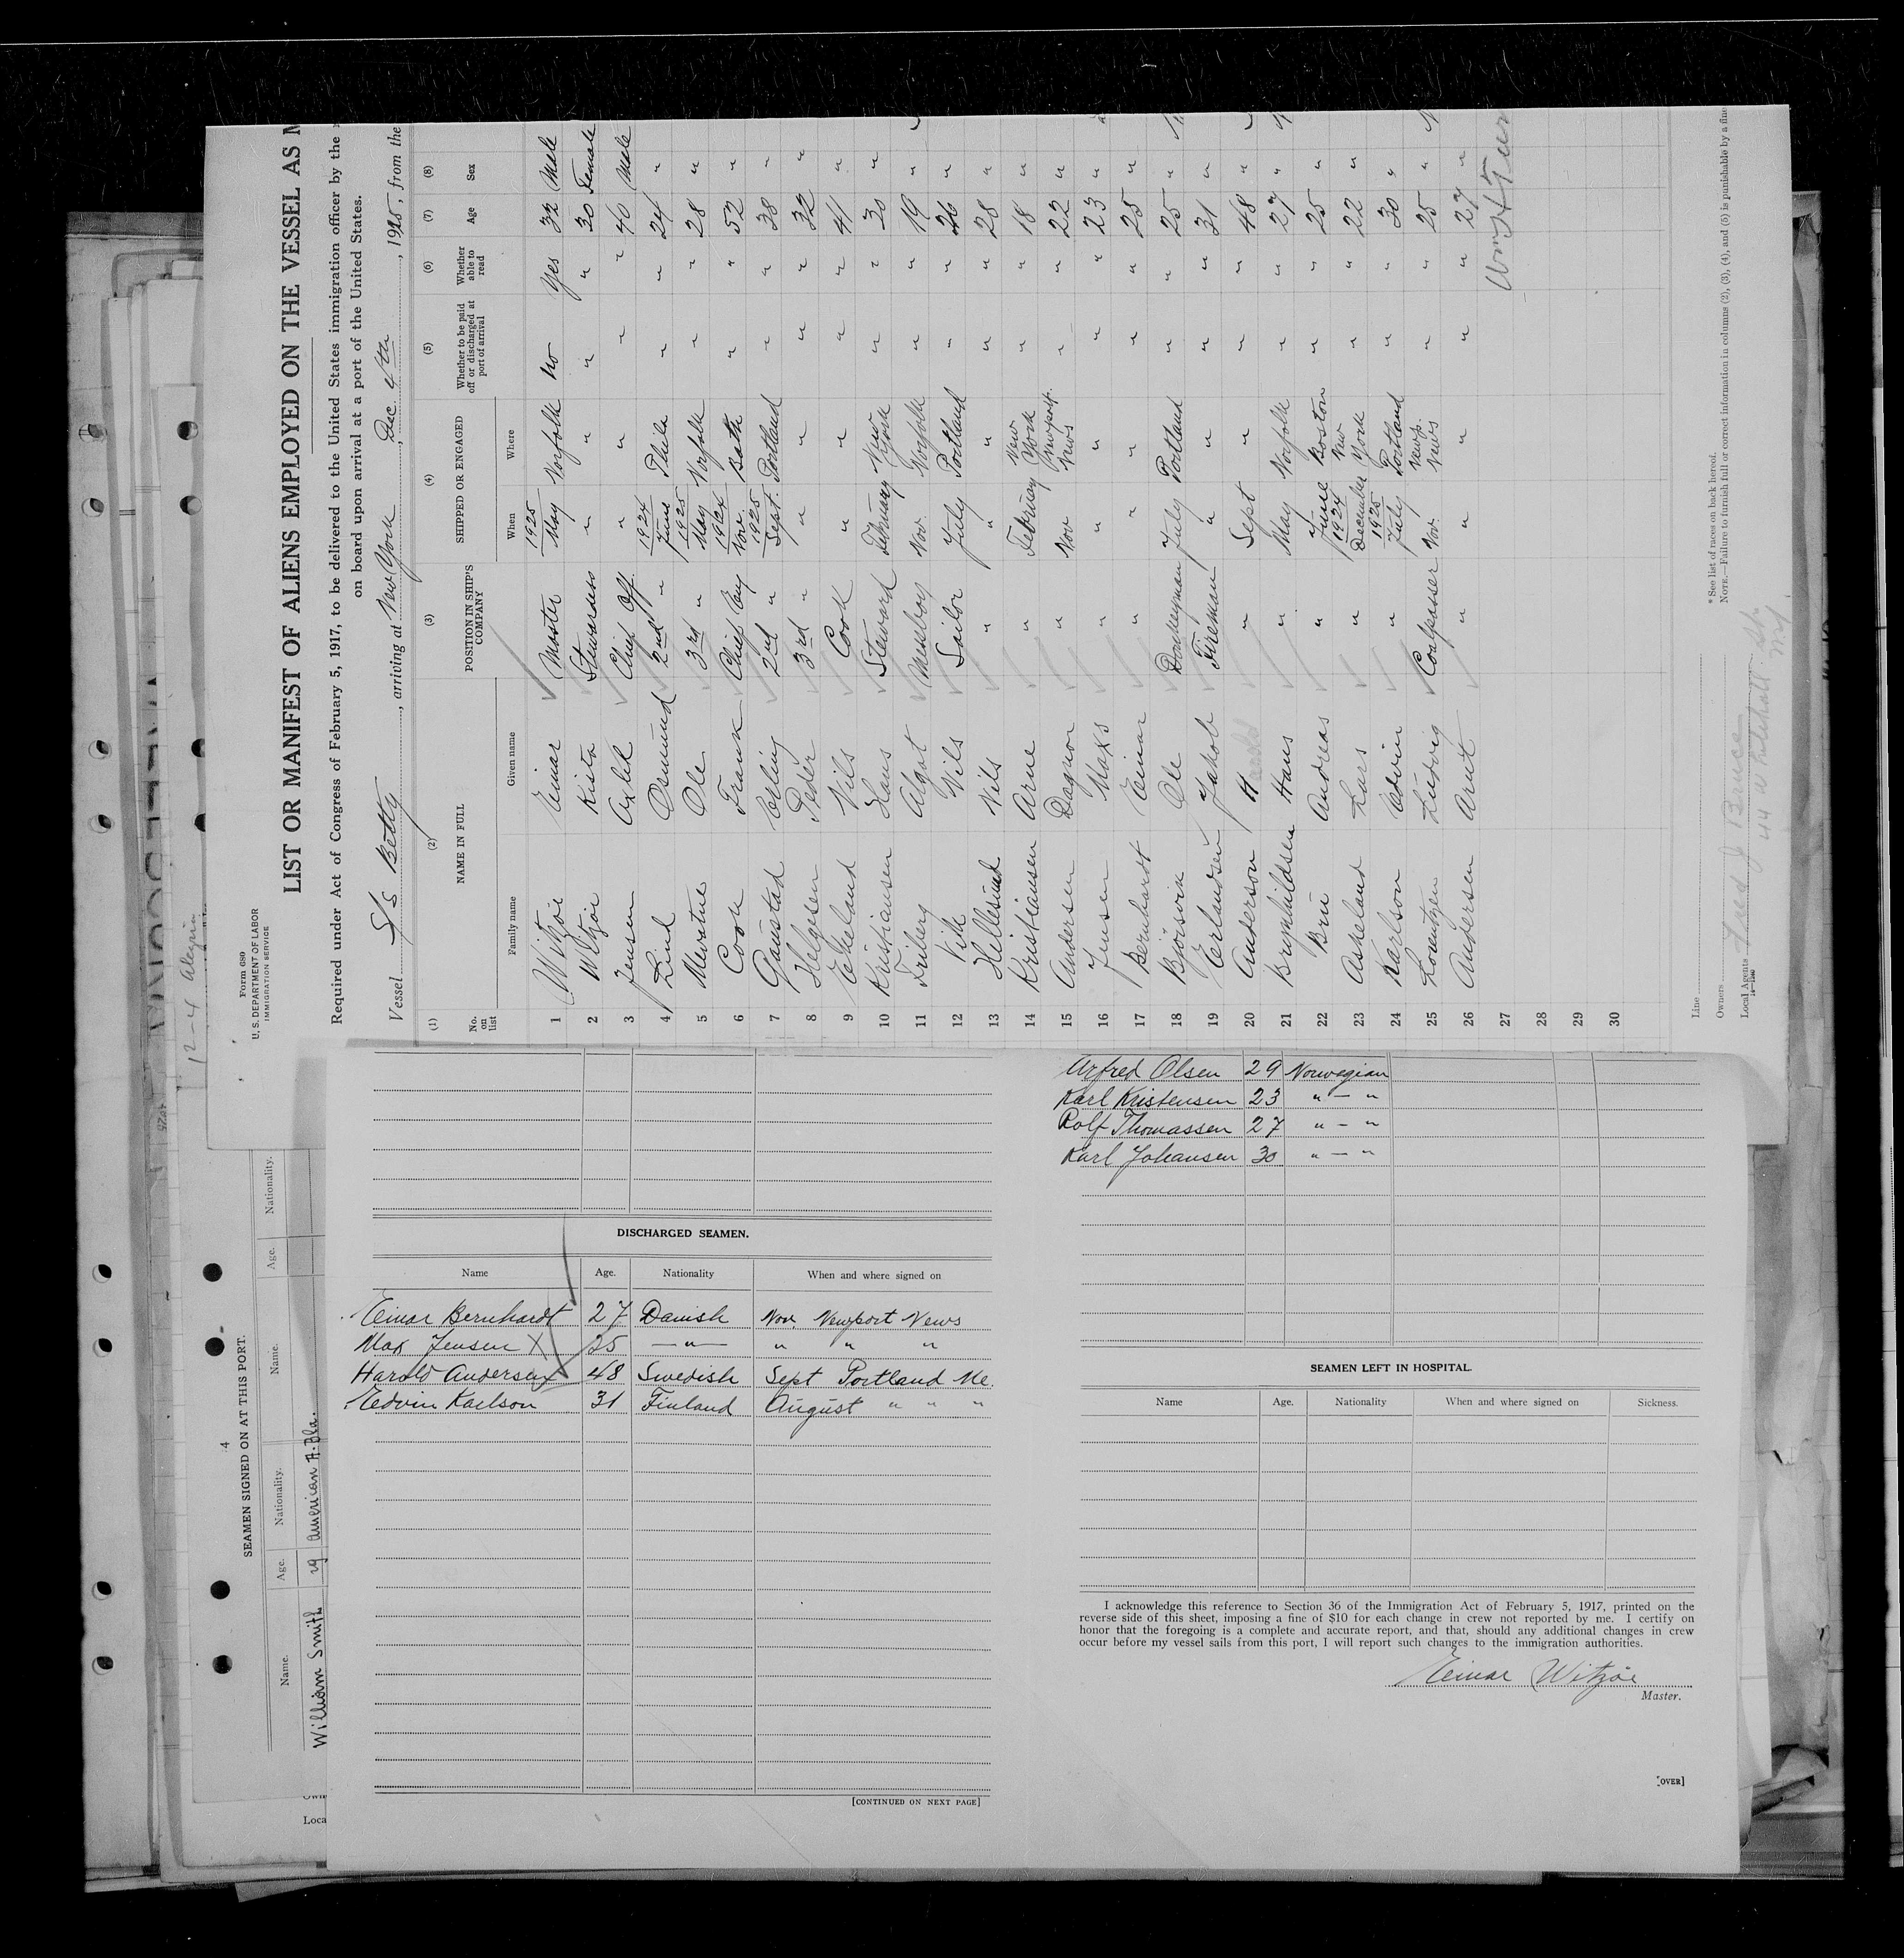 Form 689
U. S. DEPARTMENT OF LABOR
IMMIGRATION SERVICE
LIST OR MANIFEST OF ALIENS EMPLOYED ON THE VESSEL AS M
Required under Act of Congress of February 5, 1917, to be delivered to the United States immigration officer by the
on board upon arrival at a port of the United States.
Vessel S/S Betty, arriving at New York, Dec. 4th, 1925, from the
(1) (2) (3) (4) (5) (6) (7) (8)
No. on list NAME IN FULL POSITION IN SHIP'S COMPANY SHIPPED OR ENGAGED Whether to be paid off or discharged at port of arrival Whether able to read Age Sex
Family name Given name When Where
1 Witzöe Einar Master 1925 May Norfolk No Yes 32 Male
2 Witzöe Kista Stewardess " " " " 30 Female
3 Jensen Axlik Chief Off. " " " " 40 Male
4 Lind Osmund 2nd " 1924 June Phila " " 24 "
5 Mevatne Ole 3rd " 1925 May Norfolk " " 28 "
6 Cook Frank Chief Eng 1924 Nov. Bath " " 52 "
7 Gaustad Erling 2nd " 1925 Sept. Portland " " 38 "
8 Helgesen Peder 3rd " " " " " 32 "
9 Ekeland Nils Cook " " " " 41 "
10 Kristiansen Hans Steward February New York " " 30 "
11 Friberg Algot Messboy Nov. Norfolk " " 19 "
12 Vik Nils Sailor July Portland " " 26 "
13 Hellesund Nils " " " " " 28 "
14 Kristiansen Arne " February New York " " 18 "
15 Andersen Dagnor " Nov Newport News " " 22 "
16 Jensen Maks " " " " " 23 "
17 Bernhardt Einar " " " " " 25 "
18 Björsvik Ole Donkeyman July Portland " " 25 "
19 Erlandsen Jakob Fireman " " " " 31 "
20 Anderson H " Sept " " " 48 "
21 Brynhildsen Hans " May Norfolk " " 27 "
22 Brü Andreas " June Boston " " 25 "
23 Askeland Lars " 1924 December New York " " 22 "
24 Karlson Edvin " 1925 July Portland " " 30 "
25 Lorentzen Ludvig Coalpasser Nov. Newp. News " " 25 "
26 Andersen Arnt " " " " " 27 "
27
28
29
30
Line
Owners
Local Agents Fred J Bruce
44 Whitehall St.
* See list of races on back hereof.
NOTE.—Failure to furnish full or correct information in columns (2), (3), (4), and (5) is punishable by a fine
12-4 Alegria
4
SEAMEN SIGNED ON AT THIS PORT.
Name. Age. Nationality. Name. Age. Nationality.
William Smith 29 american A.Bla.
Loca
DISCHARGED SEAMEN.
Name Age. Nationality When and where signed on
Einar Bernhardt 27 Danish Nov. Newport News
Max Jensen X 25 —"— " " "
Harold Andersen 48 Swedish Sept Portland Me.
Edvin Karlson 31 Finland August " " "
[CONTINUED ON NEXT PAGE]
Arfred Olsen 29 Norwegian
Karl Kristensen 23 " — "
Rolf Thomassen 27 " — "
Karl Johansen 30 " — "
SEAMEN LEFT IN HOSPITAL.
Name Age. Nationality When and where signed on Sickness.
I acknowledge this reference to Section 36 of the Immigration Act of February 5, 1917, printed on the
reverse side of this sheet, imposing a fine of $10 for each change in crew not reported by me. I certify on
honor that the foregoing is a complete and accurate report, and that, should any additional changes in crew
occur before my vessel sails from this port, I will report such changes to the immigration authorities.
Einar Witzöe
Master.
[OVER]